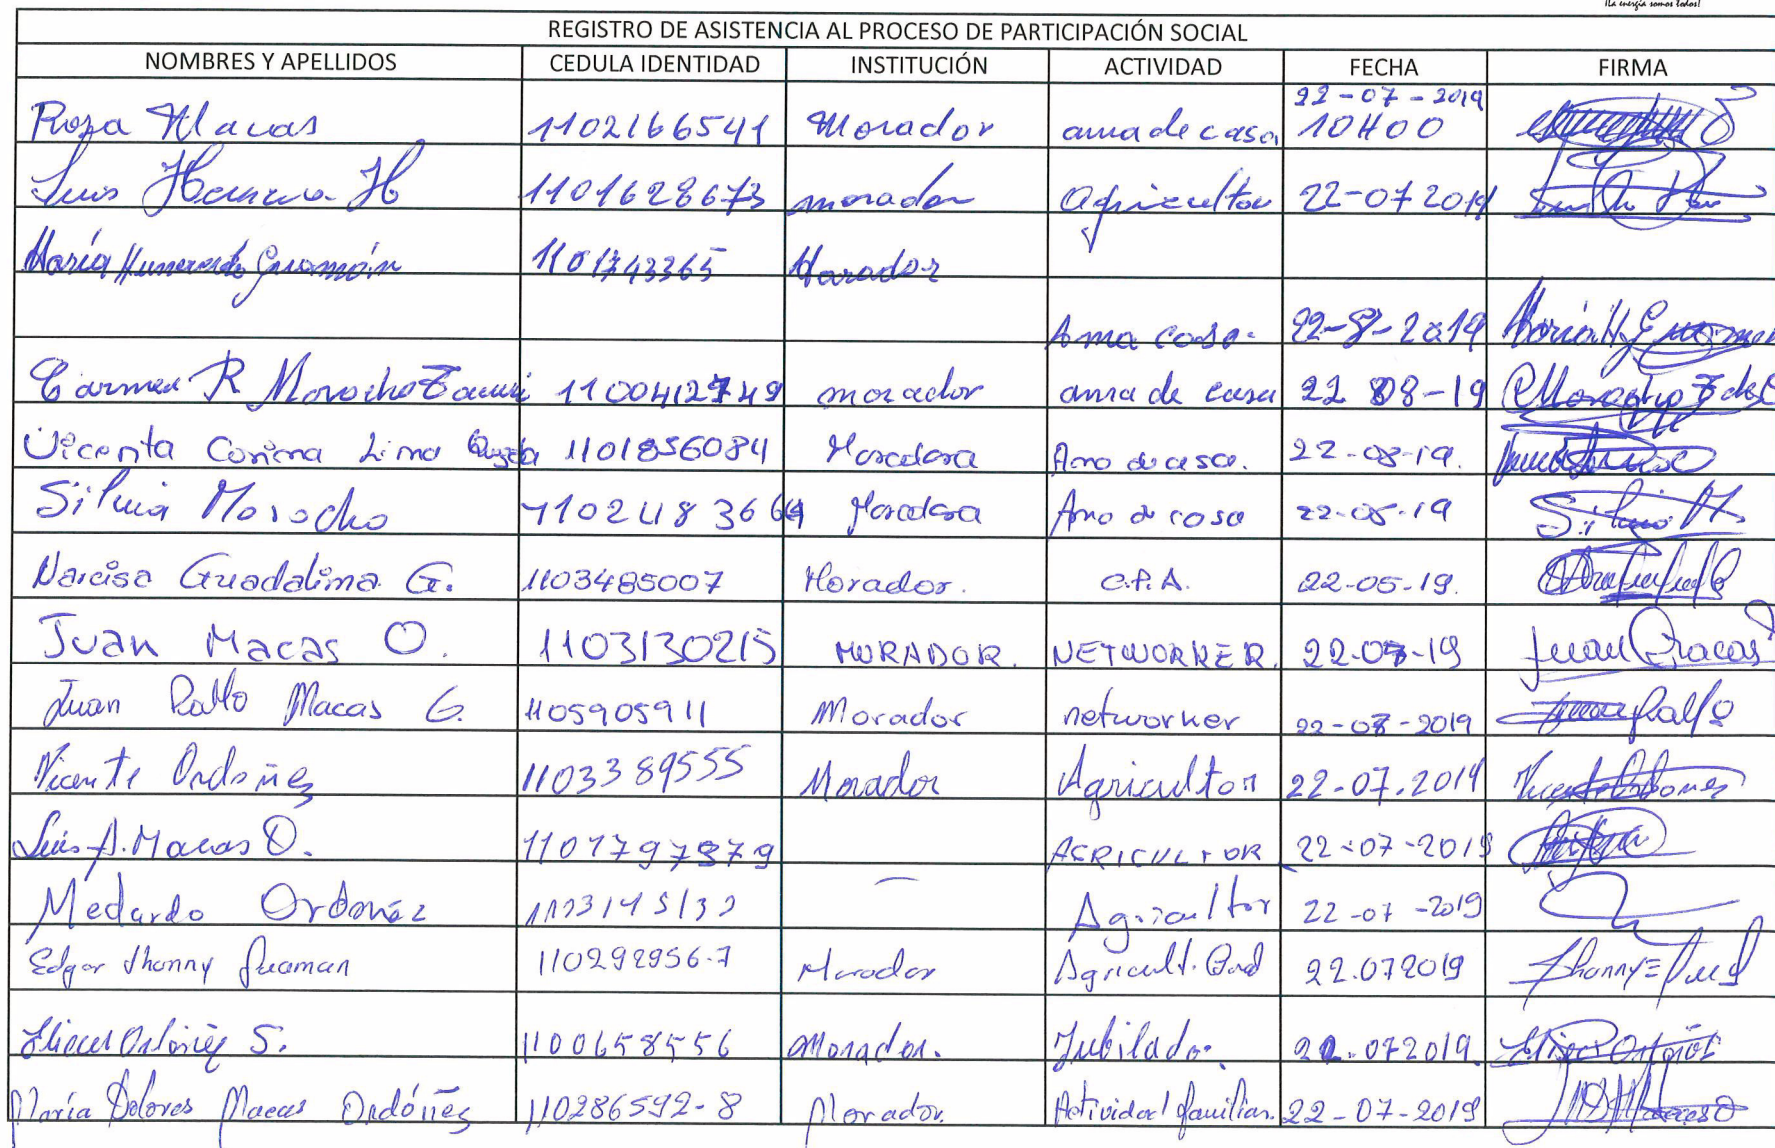 ¡La energía somos todos!
REGISTRO DE ASISTENCIA AL PROCESO DE PARTICIPACIÓN SOCIAL
NOMBRES Y APELLIDOS CEDULA IDENTIDAD INSTITUCIÓN ACTIVIDAD FECHA FIRMA
Rosa Macas 1102166541 Morador ama de casa 22-07-2019 10H00
Luis Herrera H 1101628673 morador agricultor 22-07 2019
María Guamán 1101743365 Morador
Ama casa. 22-8-2019 María H Guaman
Carmen R Morocho 1100412749 morador ama de casa 22 08-19
Vicenta Corina Lima 1101856084 Moradora Ama de casa. 22-08-19.
Silvia Morocho 1102483664 Moradora Ama de casa 22-08-19 Silvia M.
Narcisa Guadalima G. 1103485007 Morador. C.P.A. 22-05-19.
Juan Macas O. 1103130215 MORADOR. NETWORKER. 22-07-19 Juan Macas
Juan Pablo Macas G. 1105905911 Morador networker 22-07-2019 Juan Pablo
Vicente Ordoñez 1103389555 Morador Agricultor 22-07.2019 Vicente Ordoñez
Luis A. Macas O. 1101797979 AGRICULTOR 22-07-2019
Medardo Ordoñez Agricultor 22-07-2019
Edgar Jhonny Guaman 110292956-7 Morador Agricult. 22.07 2019 Jhonny
Ordóñez S. 1100658556 Morador. Jubilado. 22.07 2019.
María Dolores Macas Ordóñez 110286592-8 Morador. Actividad familiar. 22-07-2019